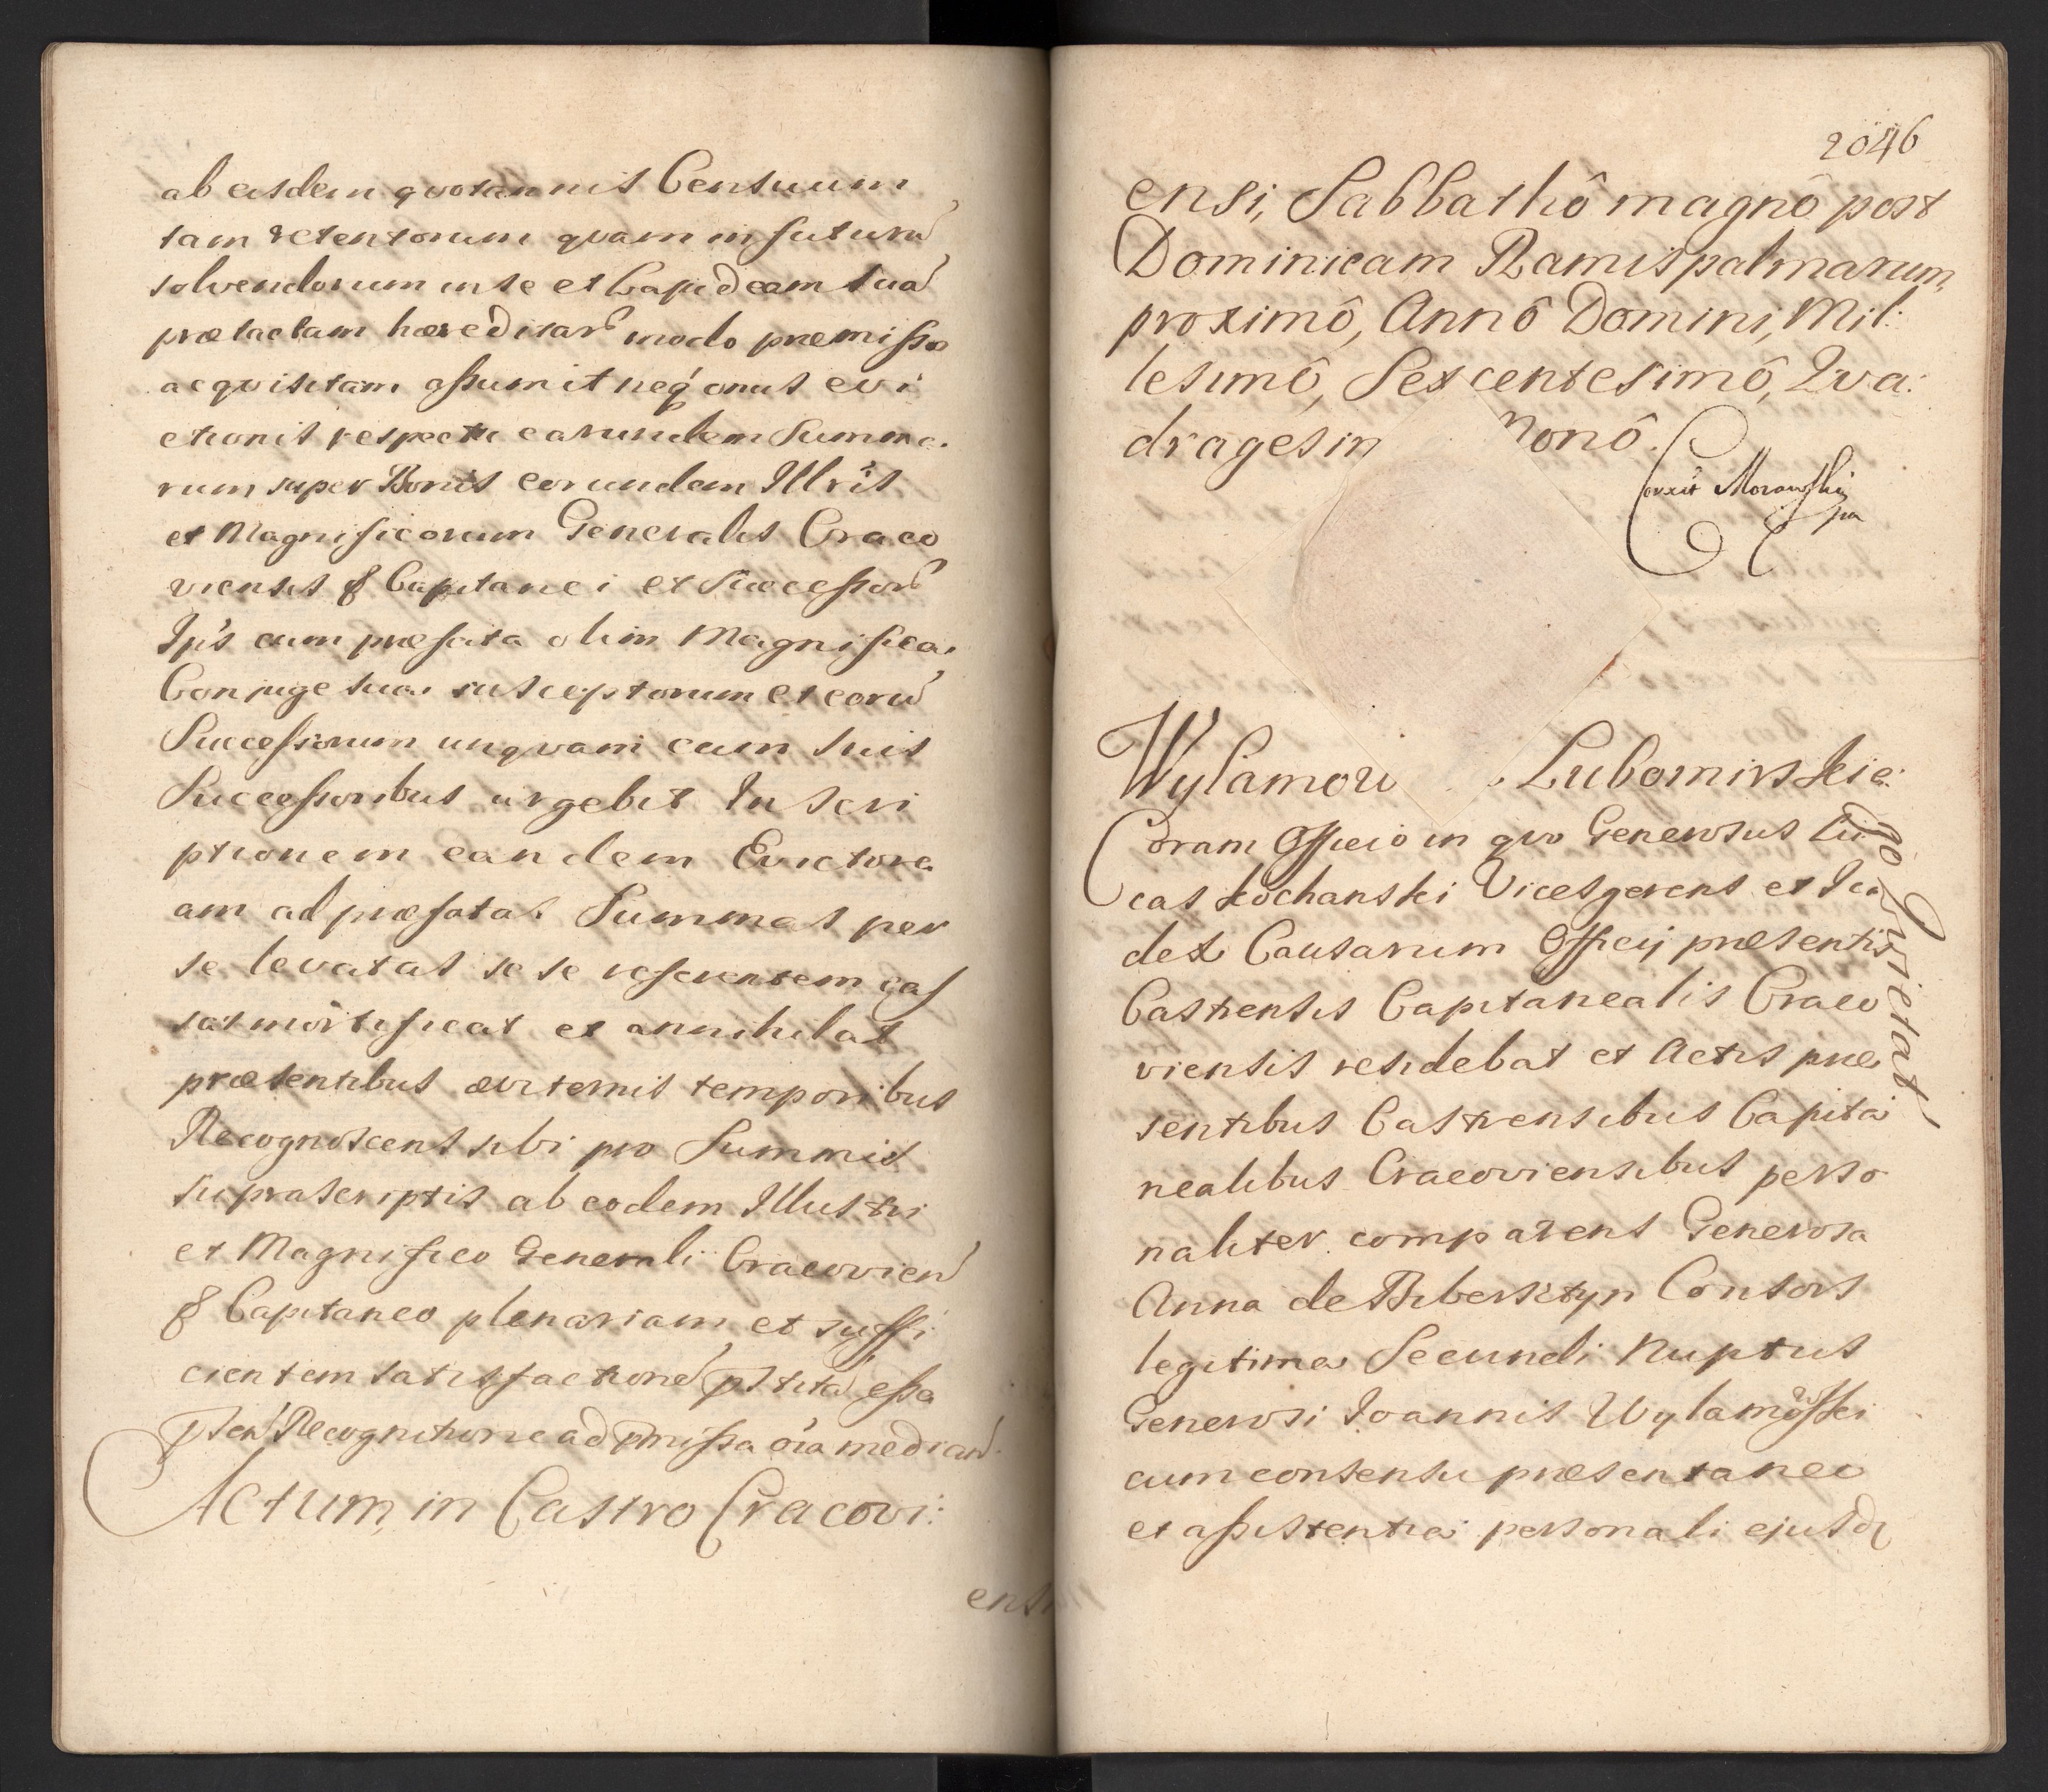 ab eisdem qvotannis Censuum
tam retentorum qvam in futurũ
solvendorum in se et Lapideam suã
prætactam hæreditar̃ modo præmisso
acqvisitam assumit neq onus evi
ctionis respectu earundem Summa-
rum super Bonis eorundem Illris
et Magnificorum Generalis Craco
viensis & Capitanei et Successor̃
Ip̃s cum præfata olim Magnifica
Conjuge sua susceptorum et eorũ
Successorum unqvam cum suis
Successoribus urgebit Inscri
ptionem eandem Evictoria
am ad præfatas Summas per
se levatas se se referentem cas
sat mortificat et annihilat
præsentibus æviternis temporibus
Recognoscens sibi pro Summis
suprascriptis ab eodem Illustri
et Magnifico Generali Cracovieñ
& Capitaneo plenariam et suffi
cientem satisfactionẽ p̃stitã esse
p̃señ Recognitione ad p̃missa oĩa mediañ.
Actum in Castro Cracovi:
ensi
2046
ensi, Sabbathô magnô post
Dominicam Ramispalmarum,
proximô, Annô Domini, Mil:
lesimô, Sexcentesimô, Qva:
dragesim nonô.
Corrxit Morawski
mp
Wylamow Lubomirskie:
go Qvietat
Coram Officio in qvo Generosus Lu
cas Kochanski Vicesgerens et Iu
dex Causarum Officij præsentis
Castrensis Capitanealis Craco
viensis residebat et Actis præ
sentibus Castrensibus Capita
nealibus Cracoviensibus perso
naliter comparens Generosa
Anna de Bibersztyn Consors
legitima Secundi Nuptus
Generosi Joannis Wylamowski
cum consensu præsentaneo
et assistentia personali ejusd